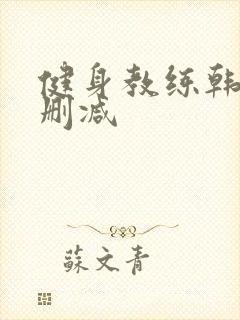 健身教练韩
删减
蘇文青